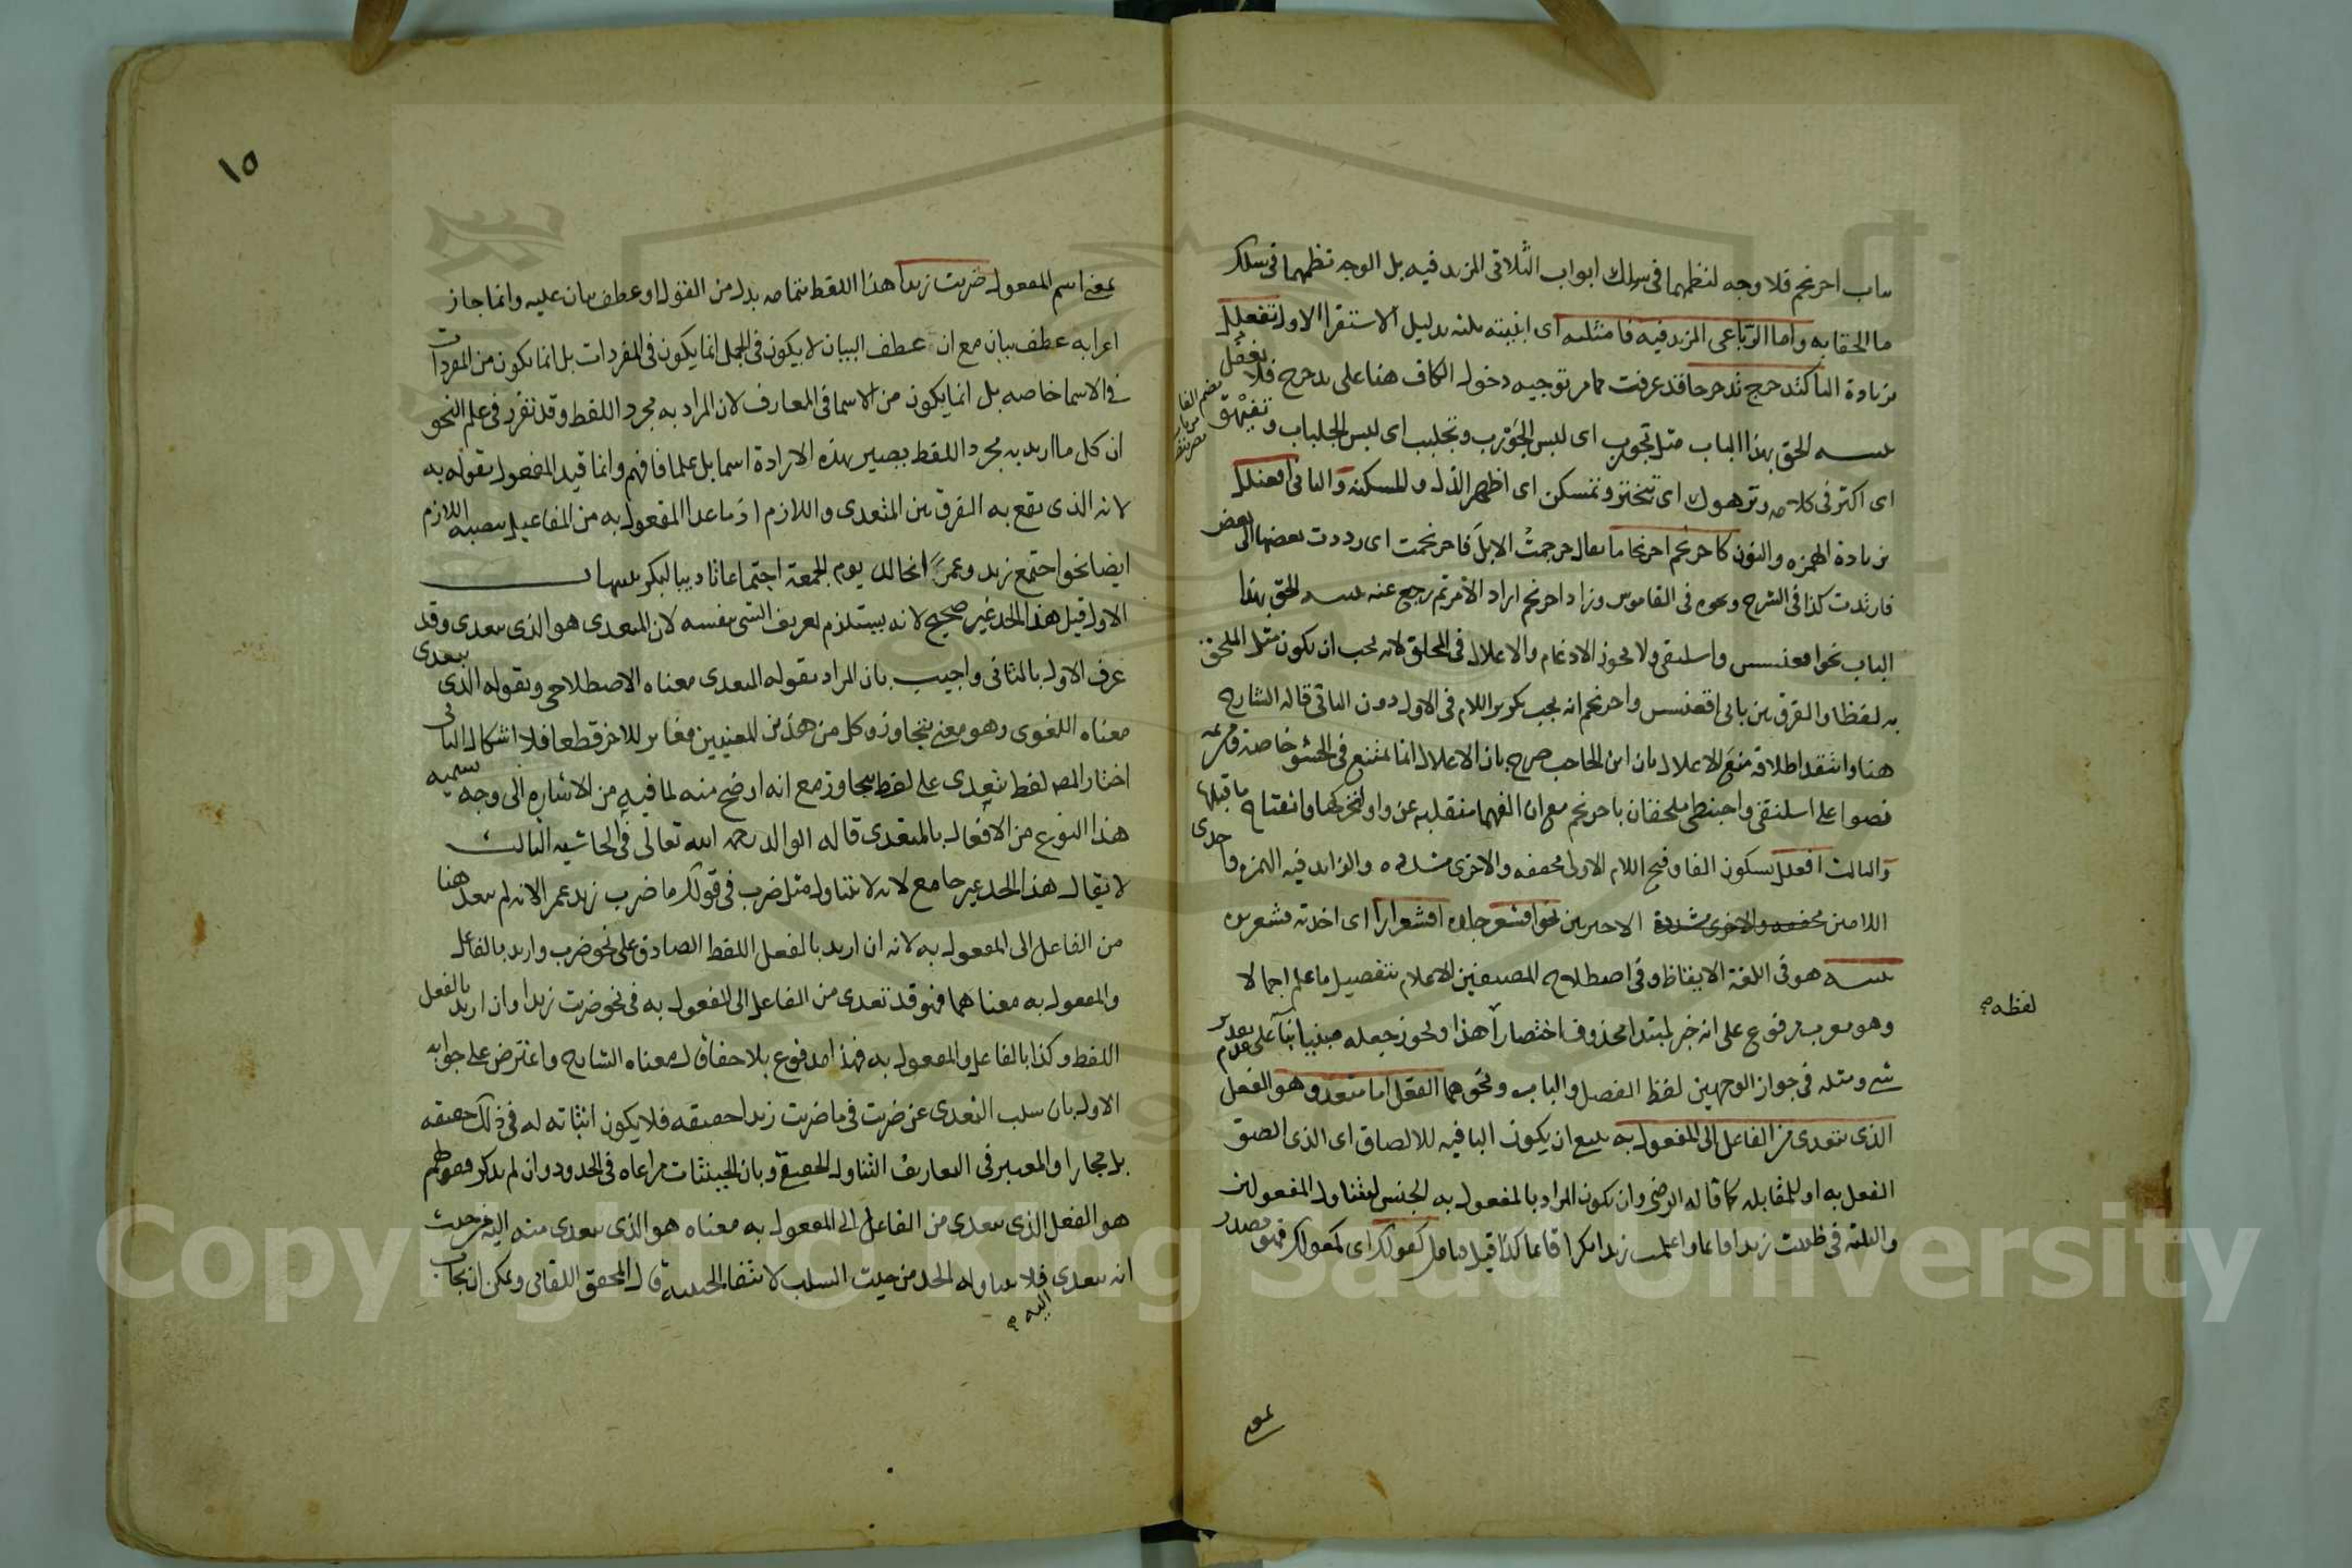 باب احرنجم فلا وجه لنظمهما فى سلك ابواب الثلاثى المزيد فيه بل الوجه نظمهما فى سلك
ما الحقا به واما الرباعى المزيد فيه فامثلته اى ابنيته ثلثه بدليل الاستقرا الاول تفعلل
بزيادة التا كتدحرج تدحرجا قد عرفت مما مر توجيه دخول الكاف هنا على تدحرج فلا تغفل
تنبيه الحق بهذا الباب مثل تجورب اى لبس الجَوْرب وتجلبب اى لبس الجلباب وتفيْهق
اى اكثر فى كلامه وترهوك اى تبختر وتمسكن اى اظهر الذل والمسكنة والثانى افعنلل
بزيادة الهمزه والنون كاحرنجم احرنجاما يقال حرجمتُ الابلَ فاحرنجمت اى رددت بعضها الى بعض
فارتدت كذا فى الشرح ونحوه فى القاموس وزاد احرنجم اراد الامر ثم رجع عنه تنبيه الحق بهذا
الباب نحو اقعنسس واسلنقى ولا يجوز الادغام والاعلال فى الملحق لانه يجب ان يكون مثل الملحق
به لفظا والفرق بين بابى اقعنسس واحرنجم انه يجب تكرير اللام فى الاول دون الثانى قاله الشارح
هنا وانتقد اطلاقه منع الاعلال بان ابن الحاجب صرح بان الاعلال انما يمتنع فى الحشو خاصة ومن ثمه
نصوا على اسلنقى واحبنطى ملحقان باحرنجم مع ان الفهما منقلبه عن واو لتحركها وانفتاح ما قبلها
والثالث افعلل بسكون الفا وفتح اللام الاولى مخففه والاخرى مشدده والزايد فيه الهمزه واحدى
اللامين الاخيرين نحو اقشعر جلده اقشعرارا اى اخذته قشعريره
تنبيه هو فى اللغة الايقاظ وفى اصطلاح المصنفين الاعلام بتفصيل ما علم اجمالا
وهو معرب مرفوع على انه خبر لمبتدا محذوف اختصاراً هذا ويجوز جعله مبنيا بنآ على عدم تقدير
شى ومثله فى جواز الوجهين لفظ الفصل والباب ونحوهما الفعل اما متعد وهو الفعل
الذى يتعدى من الفاعل الى المفعول به يصح ان يكون البا فيه للالصاق اى الذى الصق
الفعل به او للمقابله كما قاله الرضى وان يكون المراد بالمفعول به الجنس ليتناول المفعولين
والثلثه فى ظننت زيدا قايما واعلمت زيدا بكرا قايما كذا قيل تامل كقولك اى كمقولك فهو مصدر
لفظه صح
بمعنى
١٥
بمعنى اسم المفعول ضربت زيدا هذا اللفظ بتمامه بدل من القول او عطف بيان عليه وانما جاز
اعرابه عطف بيان مع ان عطف البيان لا يكون فى الجمل انما يكون فى المفردات بل انما يكون من المفردات
فى الاسما خاصه بل انما يكون من الاسما فى المعارف لان المراد به مجرد اللفظ وقد تقرر فى علم النحو
ان كل ما اريد به مجرد اللفظ يصير بهذه الارادة اسما بل علما فافهم وانما قيد المفعول بقوله به
لانه الذى يقع به الفرق بين المتعدى واللازم اذ ما عدا المفعول به من المفاعيل ينصبه اللازم
ايضا نحو اجتمع زيد وعمرًا فى الدار يوم الجمعة اجتماعا تاديبا لبكر تنبيهات
الاول قيل هذا الحد غير صحيح لانه يستلزم تعريف الشى بنفسه لان المتعدى هو الذى يتعدى وقد
عرف الاول بالثانى واجيب بان المراد بقوله المتعدى معناه الاصطلاحى وبقوله الذى يتعدى
معناه اللغوى وهو معنى يتجاوز وكل من هذين المعنيين مغاير للاخر قطعا فلا اشكال الثانى
اختار المص لفظ يتعدى على لفظ يتجاوز مع انه اوضح منه لما فيه من الاشاره الى وجه تسميه
هذا النوع من الافعال بالمتعدى قاله الوالد رحمه الله تعالى فى الحاشيه الثالث
لا يقال هذا الحد غير جامع لانه لا يتناول مثل ضرب فى قولك ما ضرب زيد عمرا لانه لم يتعد هنا
من الفاعل الى المفعول به لانه ان اريد بالفعل اللفظ الصادق على نحو ضرب واريد بالفاعل
والمفعول به معناهما فهو قد تعدى من الفاعل الى المفعول به فى نحو ضربت زيدا وان اريد بالفعل
اللفظ وكذا بالفاعل والمفعول به فهذا مدفوع بلا خفاء معناه الشارح واعترض على جوابه
الاول بان سلب التعدى عن ضربت فى ما ضربت زيدا حقيقه فلا يكون اثباته له فى ذلك حقيقه
بل مجازا والمعتبر فى التعاريف التناول الحقيقى وبان الحيثيات مراعاه فى الحدود وان لم تذكر فقولهم
هو الفعل الذى يتعدى من الفاعل الى المفعول به معناه هو الذى يتعدى منه اليه من حيث
انه يتعدى اليه صح فلا يتناوله الحد من حيث السلب لانتفا الحيثية قال المحقق اللقانى ويمكن ان يجاب
Copyright © King Saud University